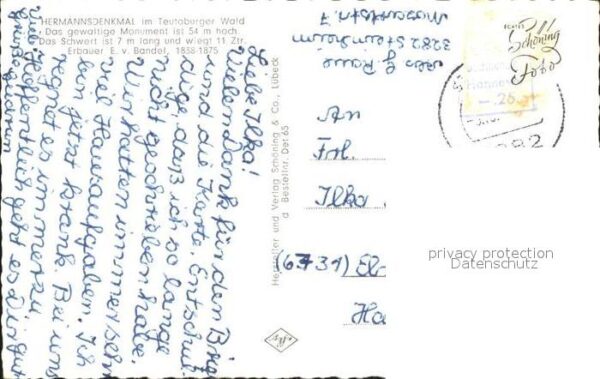 HERMANNSDENKMAL im Teutoburger Wald
Das gewaltige Monument ist 54 m hoch.
Das Schwert ist 7 m lang und wiegt 11 Ztr.
Erbauer E. v. Bandel, 1838-1875
Liebe Ilka!
Vielen Dank für den Brief
und die Karte. Entschul
dige, daß ich so lange
nicht geschrieben habe.
Wir hatten immer sehr
viel Hausaufgaben. Ich
bin jetzt krank. Bei uns
regnet es immerzu
Hoffentlich geht es Dir gut
Hersteller und Verlag Schöning & Co., Lübeck
Bestellnr. Det 65
3282 Steinheim
ECHTES
Schöning
Foto
An
Frl.
Ilka
(6731) El-
Ha
privacy protection
Datenschutz